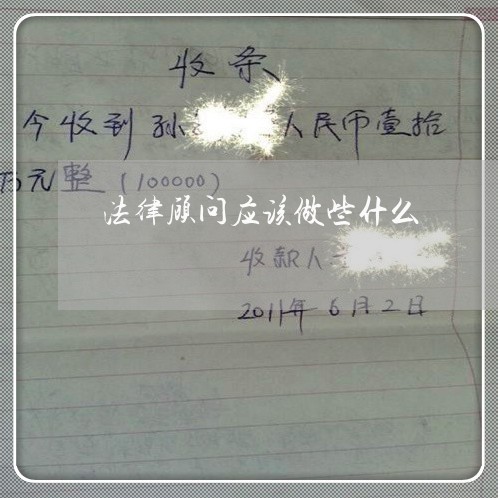 收条
今收到孙 人民币壹拾
万元整（100000）
法律顾问应该做些什么
收款人
2011年6月2日